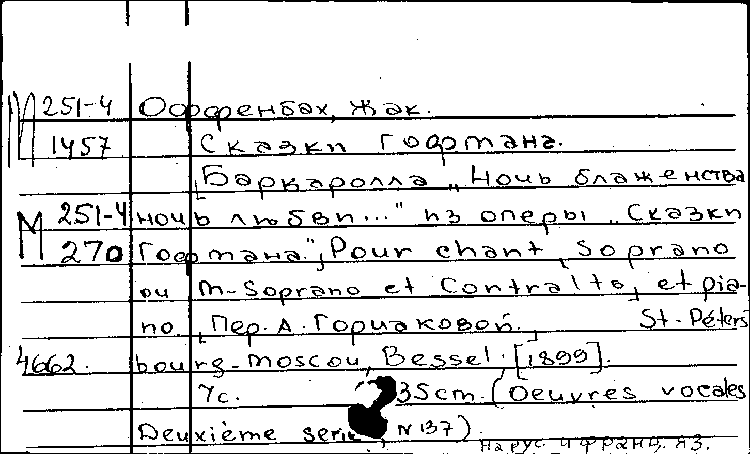 М 251-4 Оффенбах, Жак.
1457 Сказки Гофмана.
[Баркаролла „Ночь блаженства
М 251-4 ночь любви..." из оперы „Сказки
270 Гофмана", Pour chant, Soprano
ou m-Soprano et Contralto, et pia-
no. [Пер. А. Горчаковой.] St-Péters
4662. bourg-Moscou, Bessel. [1899].
7с. 35cm. (Oeuvres vocales
Deuxième serie, N 137).
На рус. и франц. яз.